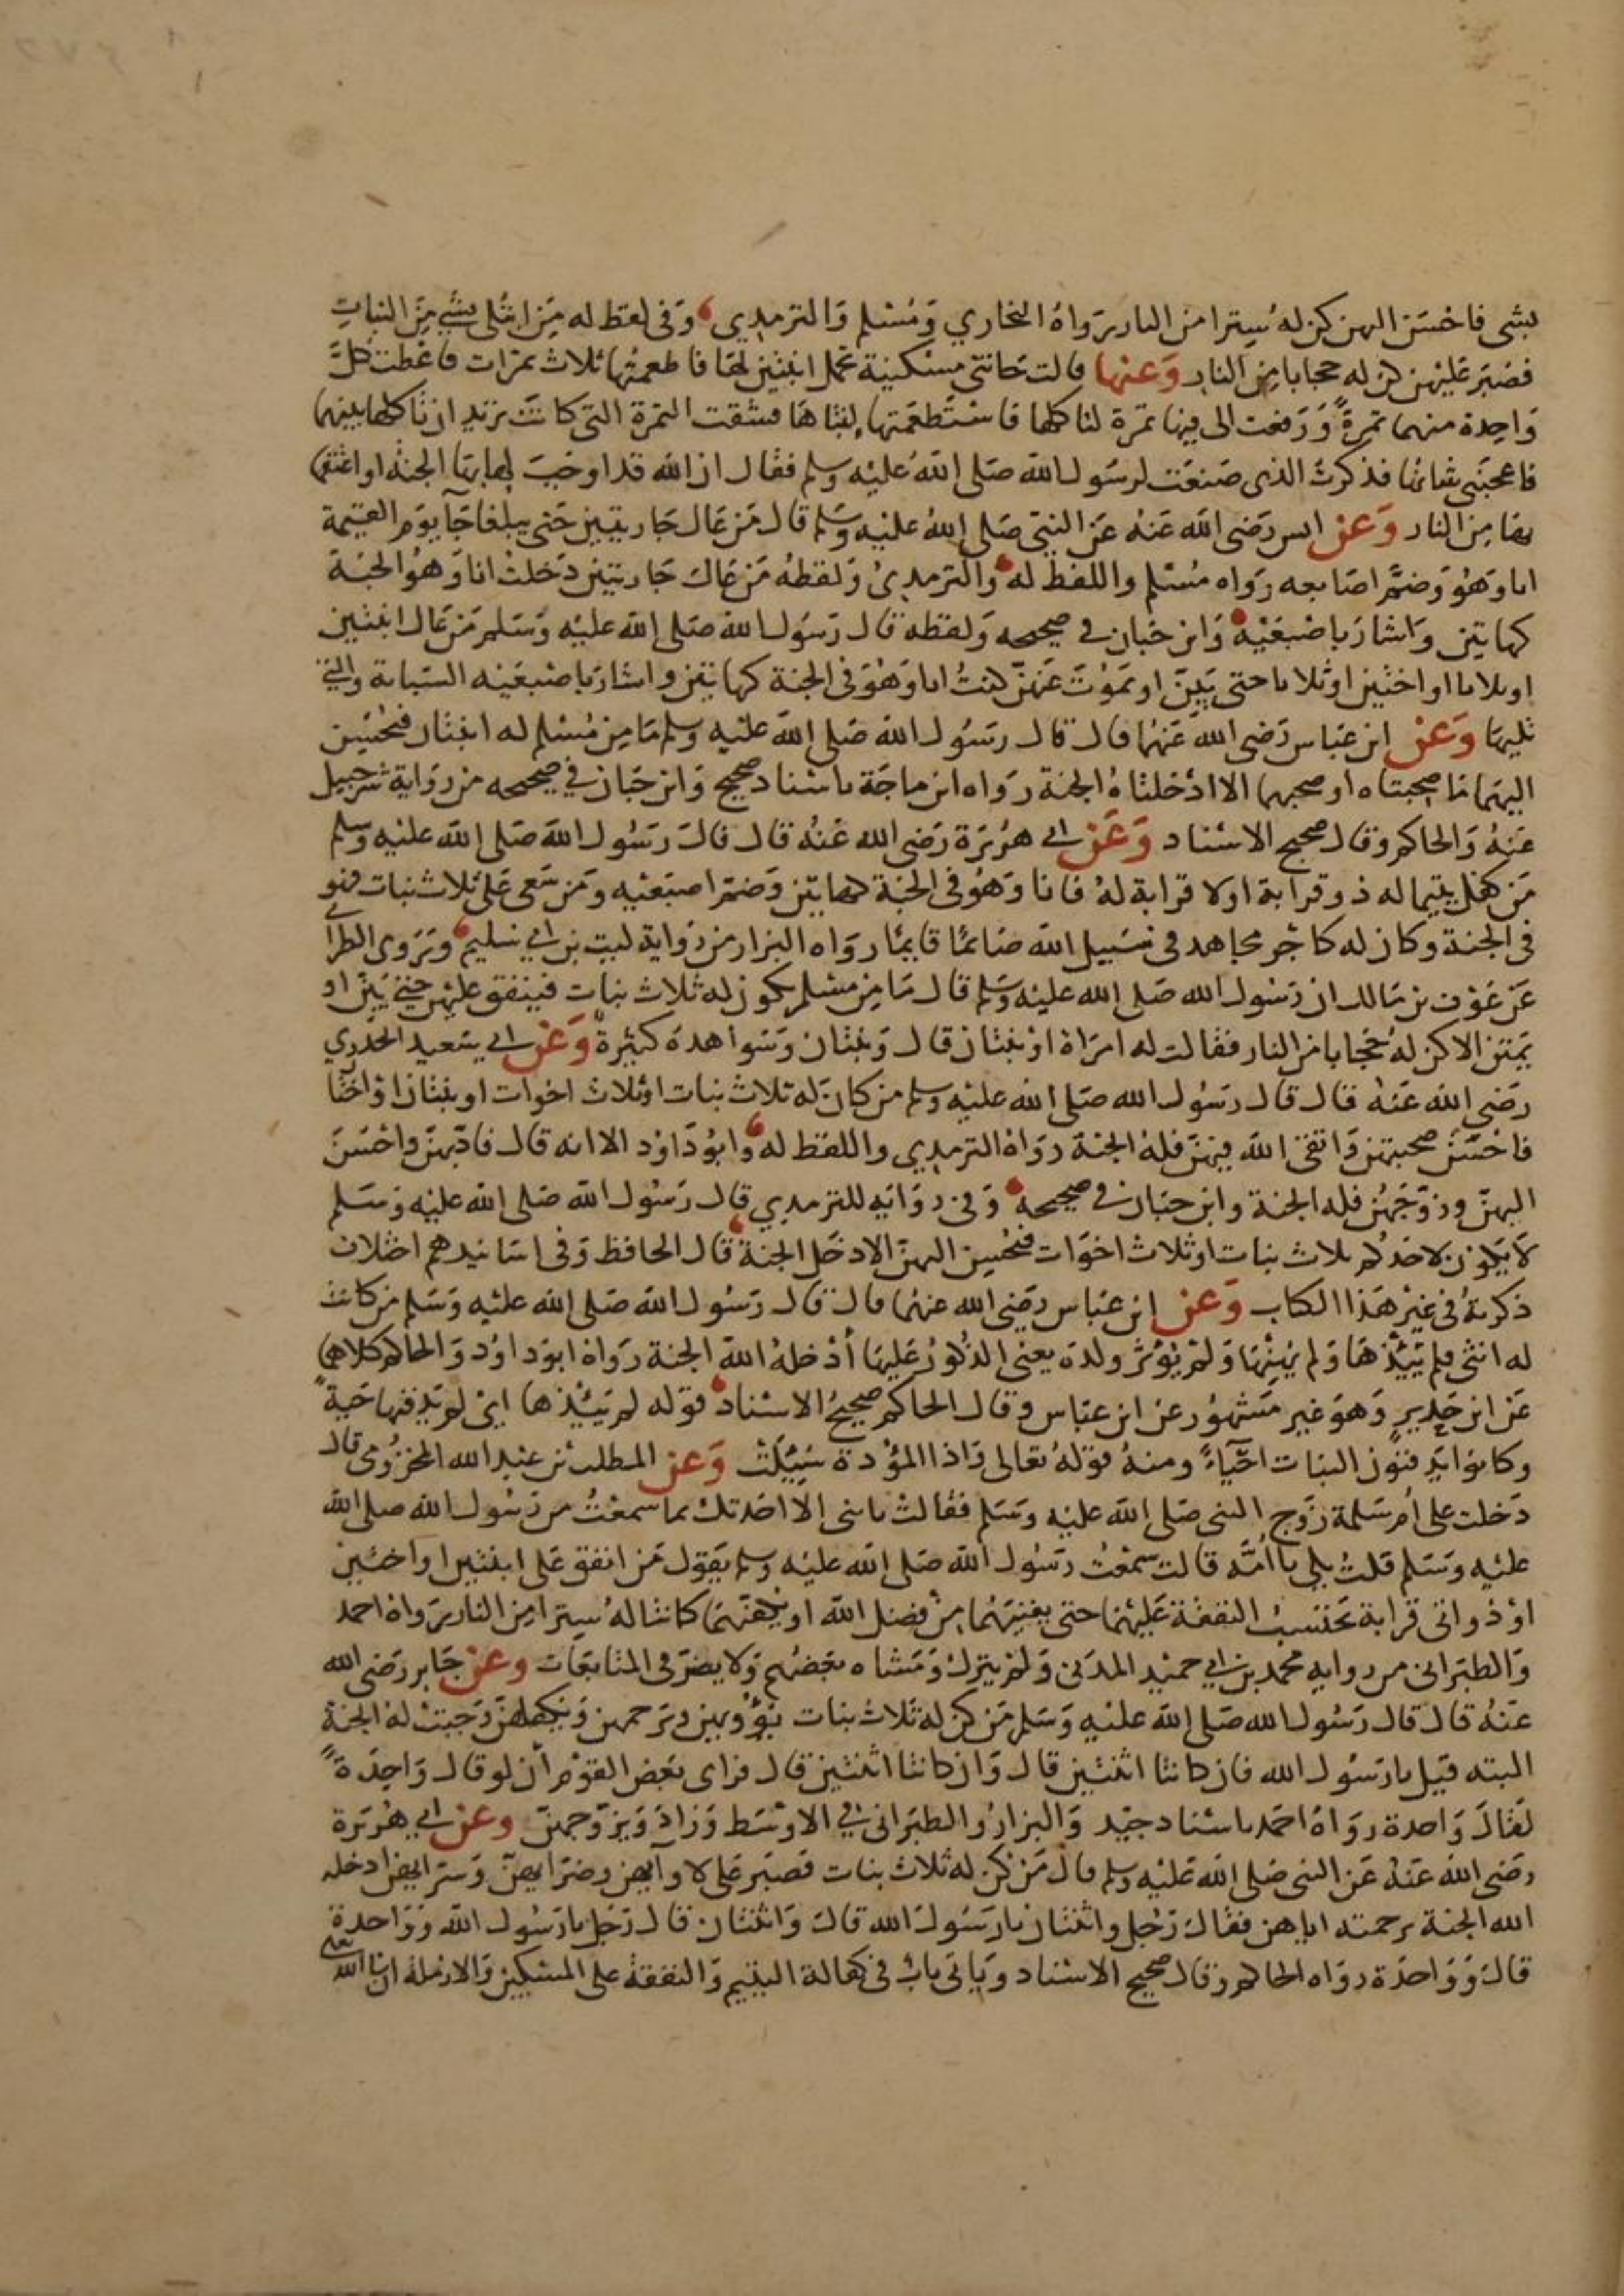 بشى فاحسن اليهن كن له سترا من النار رواه البخاري ومسلم والترمدي وفى لفظ له من ابتلى بشي من البنات
فصبر عليهن كن له حجابا من النار وعنها قالت جاتنى مسكينة تحمل ابنتين لها فاطعمتها ثلاث تمرات فاعطت كل
واحدة منهما تمرة ورفعت الى فيها تمرة لتاكلها فاستطعمتها ابنتاها فشقت التمرة التى كانت تريد ان تاكلها بينهما
فاعجبنى شانها فذكرت الذى صنعت لرسول الله صلى الله عليه وسلم فقال ان الله قد اوجب لها بها الجنة او اعتقها
بها من النار وعن انس رضى الله عنه عن النبى صلى الله عليه وسلم قال من عال جاريتين حتى يبلغا جا يوم القيمة
انا وهو وضم اصابعه رواه مسلم واللفظ له والترمدي ولفظه من عال جاريتين دخلت انا وهو الجنة
كهاتين واشار باصبعيه وابن حبان في صحيحه ولفظه قال رسول الله صلى الله عليه وسلم من عال ابنتين
او ثلاثا او اختين او ثلاثا حتى يبن او يموت عنهن كنت انا وهو فى الجنة كهاتين واشار باصبعيه السبابة والتي
تليها وعن ابن عباس رضى الله عنهما قال قال رسول الله صلى الله عليه وسلم ما من مسلم له ابنتان فيحسن
اليهما ما صحبتاه او صحبهما الا ادخلتاه الجنة رواه ابن ماجة باسناد صحيح وابن حبان في صحيحه من رواية شرحبيل
عنه والحاكم وقال صحيح الاسناد وعن ابي هريرة رضى الله عنه قال قال رسول الله صلى الله عليه وسلم
من كفل يتيما له ذو قرابة او لا قرابة له فانا وهو فى الجنة كهاتين وضم اصبعيه ومن سعى على ثلاث بنات فهو
فى الجنة وكان له كاجر مجاهد فى سبيل الله صائما قايما رواه البزار من رواية ليث بن ابي سليم وروى الطبراني
عن عوف بن مالك ان رسول الله صلى الله عليه وسلم قال ما من مسلم يكون له ثلاث بنات فينفق عليهن حتى يبن او
يمتن الا كن له حجابا من النار فقالت له امراة او بنتان قال وبنتان وشواهده كثيرة وعن ابي سعيد الخدري
رضى الله عنه قال قال رسول الله صلى الله عليه وسلم من كان له ثلاث بنات او ثلاث اخوات او بنتان او اختا
فاحسن صحبتهن واتقى الله فيهن فله الجنة رواه الترمدي واللفظ له وابو داود الا انه قال فادبهن واحسن
اليهن وزوجهن فله الجنة وابن حبان في صحيحه وفى رواية للترمدي قال رسول الله صلى الله عليه وسلم
لا يكون لاحدكم ثلاث بنات او ثلاث اخوات فيحسن اليهن الا دخل الجنة قال الحافظ وفى اسانيدهم اختلاف
ذكرته فى غير هذا الكتاب وعن ابن عباس رضى الله عنهما قال قال رسول الله صلى الله عليه وسلم من كانت
له انثى فلم يئدها ولم يهنها ولم يؤثر ولده يعنى الذكور عليها أدخله الله الجنة رواه ابو داود والحاكم كلاهما
عن ابن حدير وهو غير مشهور عن ابن عباس وقال الحاكم صحيح الاسناد قوله لم يئدها اى لم يدفنها حية
وكانوا يدفنون البنات احياء ومنه قوله تعالى واذا المؤدة سئلت وعن المطلب بن عبد الله المخزومى قال
دخلت على أم سلمة زوج النبى صلى الله عليه وسلم فقالت يا بنى الا احدثك بما سمعت من رسول الله صلى الله
عليه وسلم قلت بلى يا أمه قالت سمعت رسول الله صلى الله عليه وسلم يقول من انفق على ابنتين او اختين
او ذواتى قرابة يحتسب النفقة عليهما حتى يغنيهما من فضل الله او يكفيهما كانتا له سترا من النار رواه احمد
والطبرانى من رواية محمد بن ابي حميد المدنى ولم يترك ومشاه بعضهم ولا يضر فى المتابعات وعن جابر رضى الله
عنه قال قال رسول الله صلى الله عليه وسلم من كن له ثلاث بنات يؤويهن ويرحمهن ويكفلهن وجبت له الجنة
البته قيل يا رسول الله فان كانتا اثنتين قال وان كانتا اثنتين قال فراى بعض القوم أن لو قال واحدة
لقال واحدة رواه احمد باسناد جيد والبزار والطبرانى في الاوسط وزاد ويزوجهن وعن ابي هريرة
رضى الله عنه عن النبى صلى الله عليه وسلم قال من كن له ثلاث بنات فصبر على لاوآيهن وضرايهن وسرايهن ادخله
الله الجنة برحمته اياهن فقال رجل واثنتان يا رسول الله قال واثنتان قال رجل يا رسول الله وواحدة
قال وواحدة رواه الحاكم وقال صحيح الاسناد وياتى باب فى كفالة اليتيم والنفقة على المسكين والارملة ان شا الله